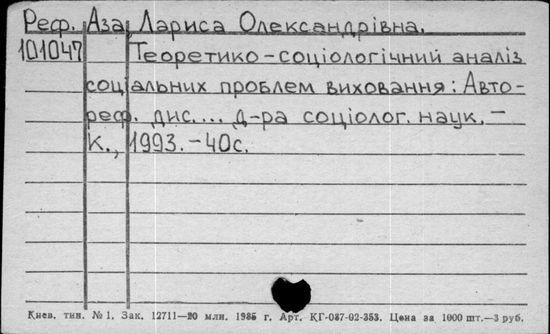 Реф. Аза, Лариса Олександрівна.
101047 Теоретико-соціологічний аналіз
соціальних проблем виховання: Авто-
реф. дис.... д-ра соціолог. наук. –
К., 1993. – 40с.
Киев. тип. № 1. Зак. 12711—20 млн. 1985 г. Арт. КГ-087-02-353. Цена за 1000 шт.—3 руб.